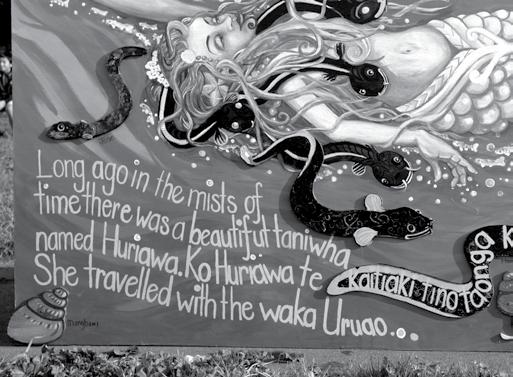 Long ago in the mists of
time there was a beautiful taniwha
named Huriawa. Ko Huriawa te
She travelled with the waka Uruao...
Kaitiaki Tino Taonga K